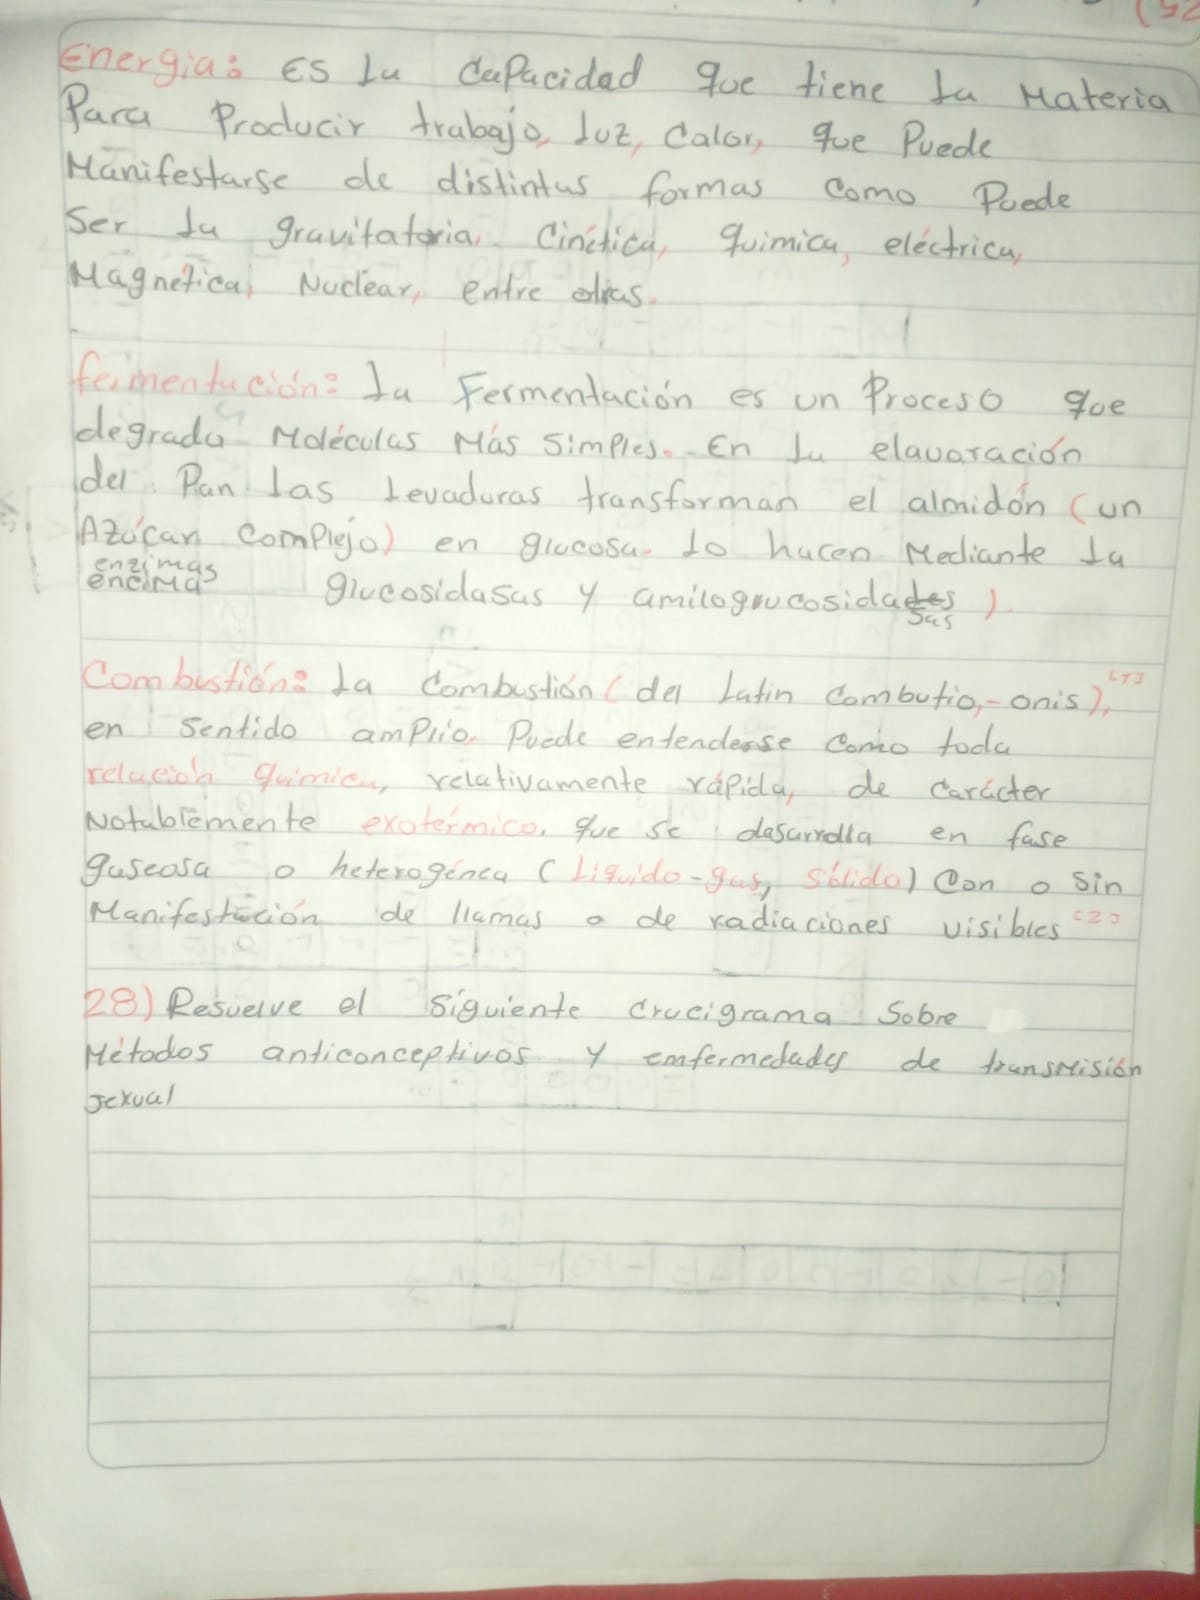 Energia: Es la capacidad que tiene la Materia
Para Producir trabajo, luz, Calor, que Puede
Manifestarse de distintas formas como Puede
Ser la gravitatoria, Cinética, química, eléctrica,
Magnética, Nuclear, entre otras.
fermentación: La Fermentación es un Proceso que
degrada Moléculas Más Simples. En la elavoración
del Pan las levaduras transforman el almidón (un
Azúcar Complejo) en glucosa. lo hacen Mediante la
enzimas
encima glucosidasas y amiloglucosidades ).
sas
Combustión: La Combustión (del Latin Combutio,-onis),[1]
en Sentido amplio. Puede entenderse como toda
relación química, relativamente rápida, de carácter
Notablemente exotérmico, que se dasarrolla en fase
gaseosa o heterogénea (líquido-gas, Sólido) Con o Sin
Manifestación de llamas o de radiaciones visibles [2]
28) Resuelve el Siguiente crucigrama Sobre
Métodos anticonceptivos y emfermedades de transmisión
sexual